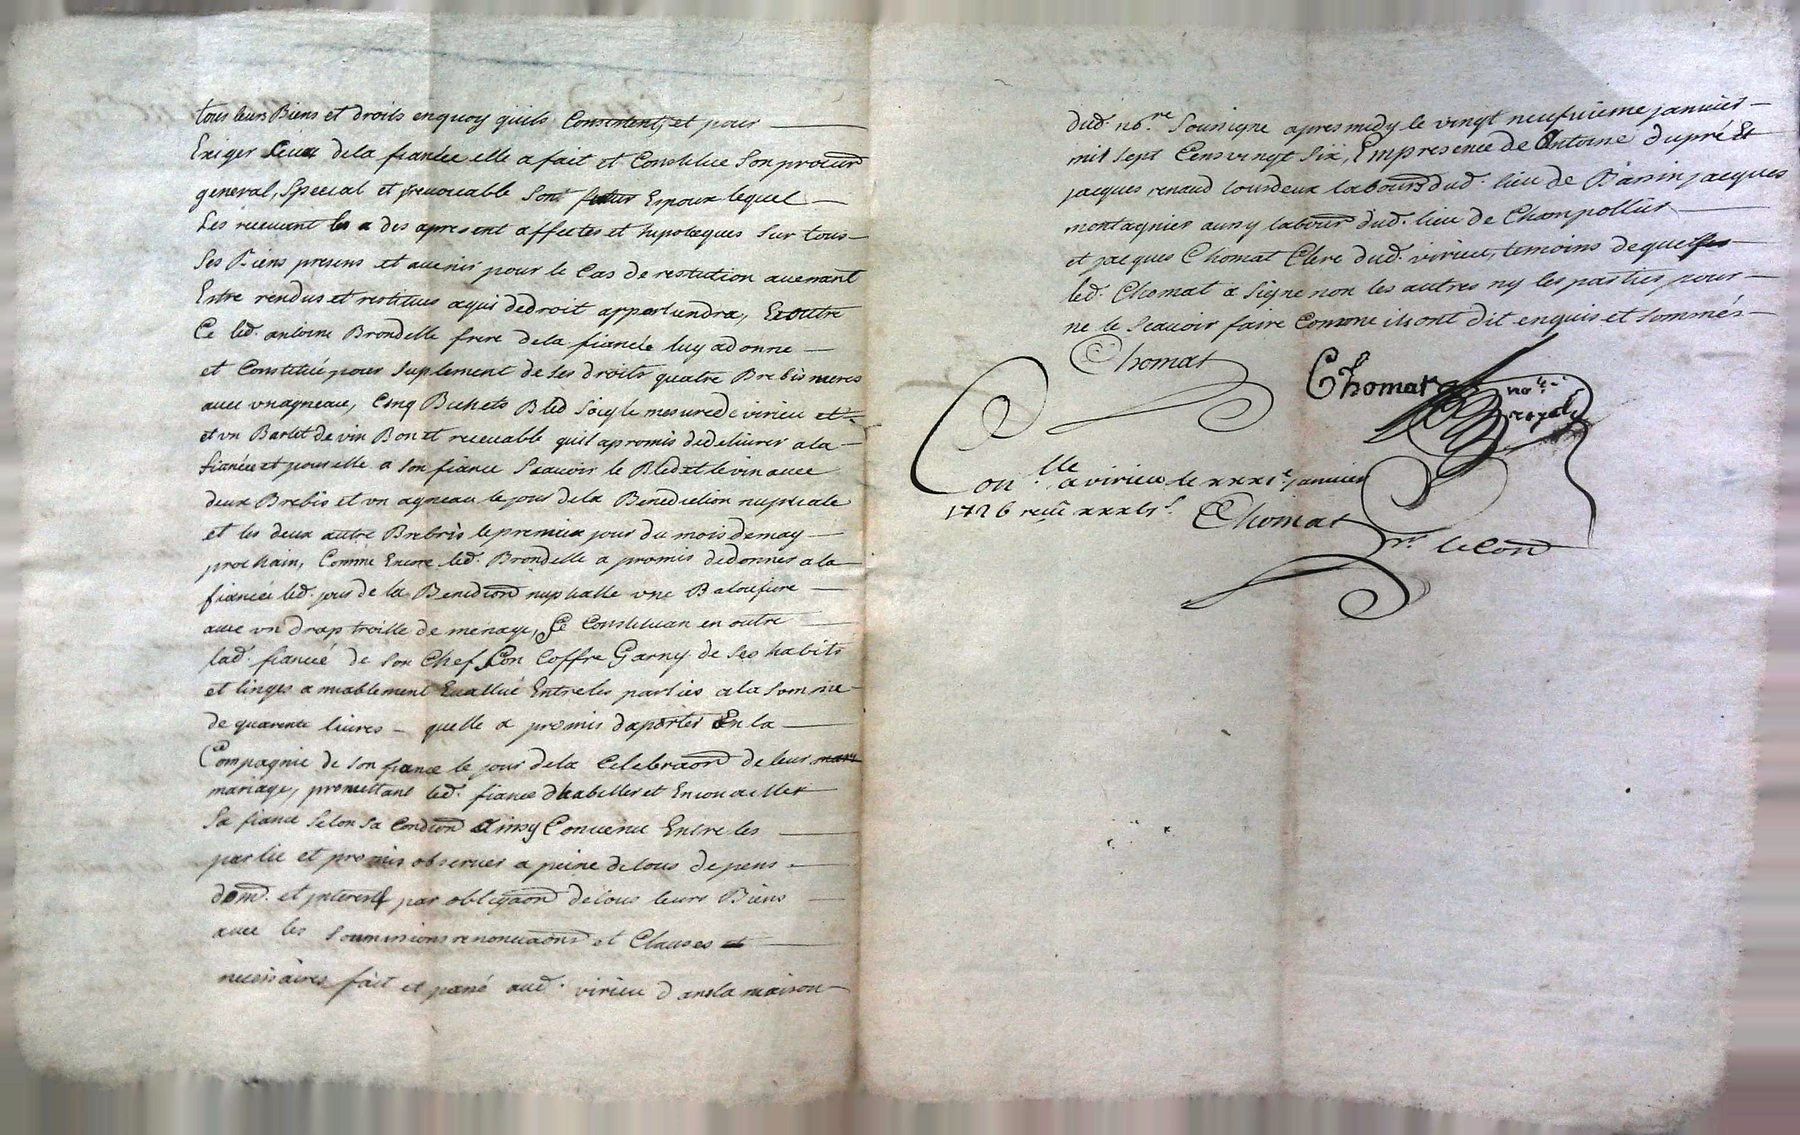 tous leurs Biens et droits enquoy quils Consistent et pour
Exiger Ceux dela fiancée elle a fait et Constitue Son procurr
general, Special et jrreuocable Sond. futur Espoux lequel
Les receuant les a des apresent affectes et hipoteques Sur tous
Ses Biens presens et auenir pour le Cas de restitution auenant
Estre rendus et restitues aqui dedroit appartiendra, Et outre
Ce led. antoine Brondelle frere dela fiancée luy adonne
et Constitué pour Suplement de Ses droits quatre Brebis meres
auec vnagneau, Cinq Bichets Bled Soigle mesure de virieu et
et vn Barlet de vin Bon et receuable quil apromis dedeliurer ala
fiancée et pour elle a Son fiance Scauoir le Bled et le vin auec
deux Brebis et vn agneau le jour dela Benediction nuptiale
et les deux autre Brebis le premier jour du mois demay
prochain, Comme Encore led. Brondelle a promis dedonner ala
fiancée led. jour de la Benediòn nuptialle vne
auec vn drap troille de menage, Se Constituan en outre
lad. fiancée de Son Chef Son Coffre Garny de Ses habits
et linges amiablement Euallué Entre les parties ala Somme
de quarente liures quelle a promis daporter En la
Compagnie de Son fiance le jour dela Celebraòn de leur mari
mariage, promettant led. fiance dhabiller et Enjouailler
Sa fiance Selon Sa Condiòn Ainsy Conuenu Entre les
partie et promis obseruer a peine de tous depens
dom. et jnterest par obligaòn de tous leurs Biens
auec les Soumissions renonciaòns et Clauses et
necessaires fait et passé aud. virieu dans la maison
dud. nore. Soussigne apres midy le vingt neufuieme januier
mil Sept Cens vingt Six, Em presence de Antoine dupré Et
jacques renaud tous deux labours dud. lieu de Bassin jacques
montagnier aussy labour dud. lieu de Champollier
et jacques Chomat Clerc dud. virieu, temoins desquelles
led. Chomat a Signe non les autres ny les parties pour
ne le Scauoir faire Comme ils ont dit enquis et Sommés
Chomat
Chomat nore. royal
Conlle. a virieu le xxxie. januier
1726 receu
Chomat